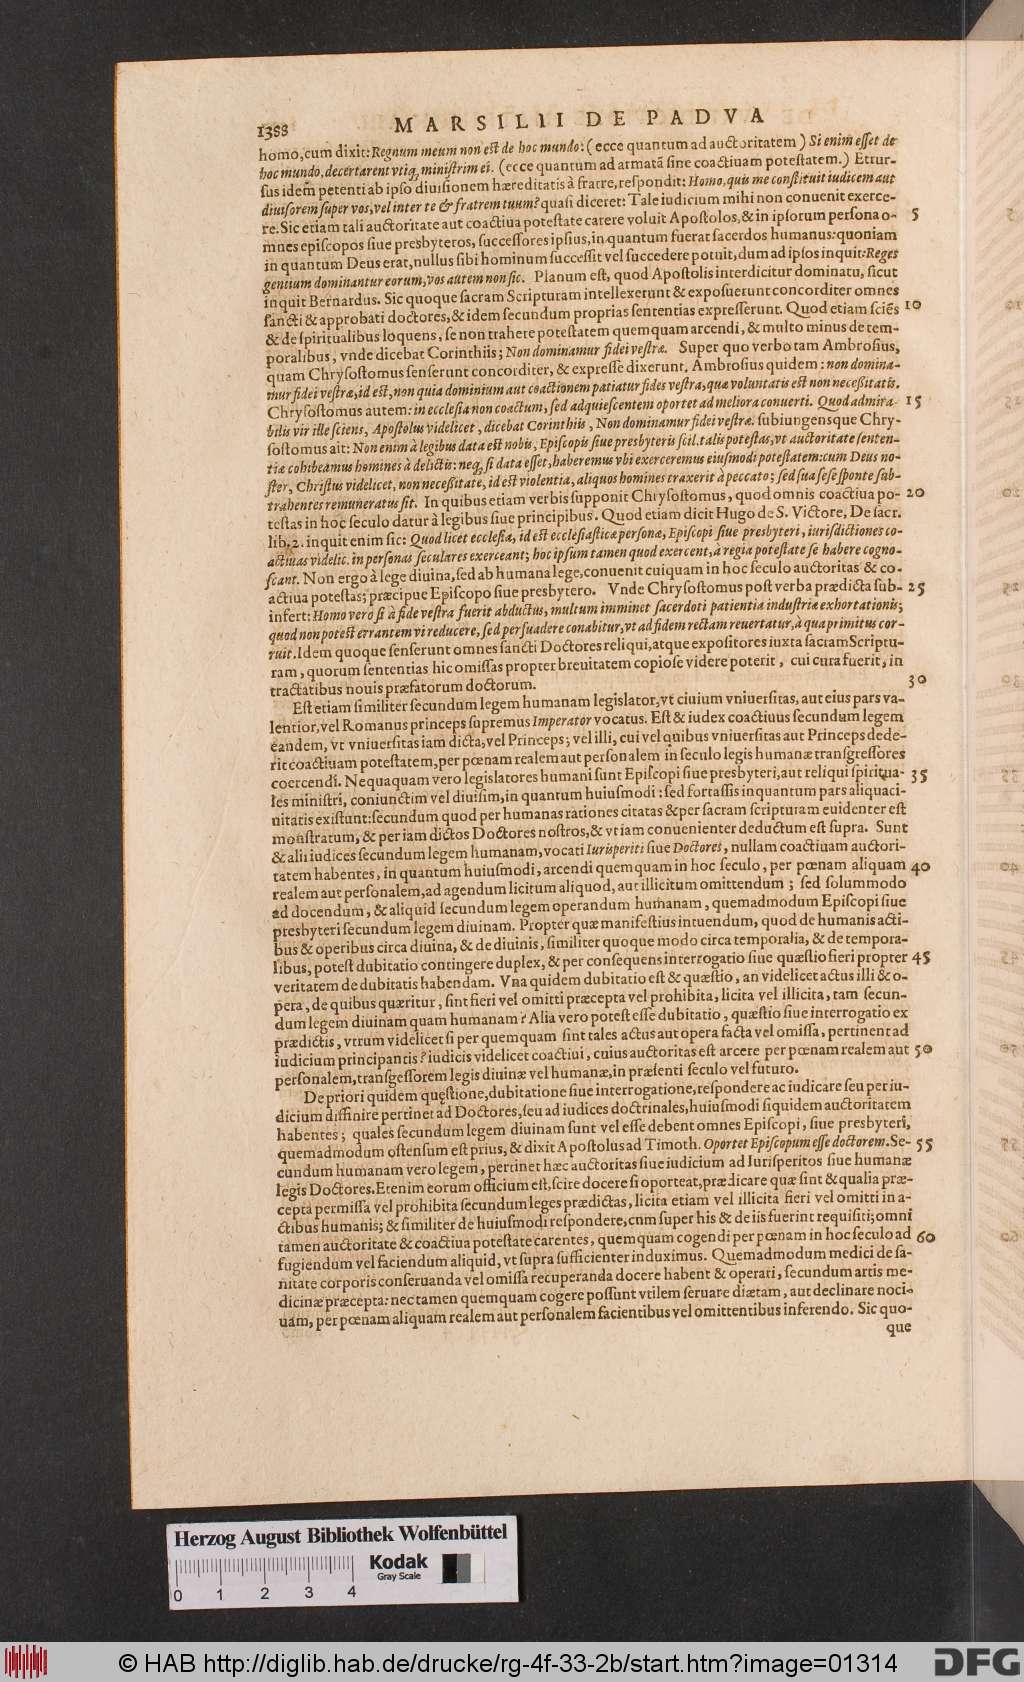 1388 MARSILII DE PADVA
homo, cum dixit: Regnum meum non est de hoc mundo: (ecce quantum ad auctoritatem) Si enim esset de
hoc mundo, decertarent vtiq; ministri mei. (ecce quantum ad armatã siue coactiuam potestatem.) Et rur-
sus idem petenti ab ipso diuisionem hæreditatis à fratre, respondit: Homo, quis me constituit iudicem aut
diuisorem super vos, vel inter te & fratrem tuum? quasi diceret: Tale iudicium mihi non conuenit exerce-
re. Sic etiam tali auctoritate aut coactiua potestate carere voluit Apostolos, & in ipsorum persona o- 5
mnes episcopos siue presbyteros, successores ipsius, in quantum fuerat sacerdos humanus: quoniam
in quantum Deus erat, nullus sibi hominum successit vel succedere potuit, dum ad ipsos inquit: Reges
gentium dominantur eorum, vos autem non sic. Planum est, quod Apostolis interdicitur dominatu, sicut
inquit Bernardus. Sic quoque sacram Scripturam intellexerunt & exposuerunt concorditer omnes
sancti & approbati doctores, & idem secundum proprias sententias expresserunt. Quod etiam sciẽs 10
& de spiritualibus loquens, se non trahere potestatem quemquam arcendi, & multo minus de tem-
poralibus, vnde dicebat Corinthiis; Non dominamur fidei vestræ. Super quo verbo tam Ambrosius,
quam Chrysostomus senserunt concorditer, & expresse dixerunt, Ambrosius quidem: non domina-
mur fidei vestræ, id est, non quia dominium aut coactionem patiatur fides vestra, quæ voluntatis est non necessitatis.
Chrysostomus autem: in ecclesia non coactum, sed adquiescentem oportet ad meliora conuerti. Quod admira- 15
bilis vir ille sciens, Apostolus videlicet, dicebat Corinthiis, Non dominamur fidei vestræ. subiungensque Chry-
sostomus ait: Non enim à legibus data est nobis, Episcopis siue presbyteris scil. talis potestas, vt auctoritate senten-
tiæ cohibeamus homines à delictis: neq; si data esset, haberemus vbi exerceremus eiusmodi potestatem: cum Deus no-
ster, Christus videlicet, non necessitate, id est violentia, aliquos homines traxerit à peccato; sed sua sese sponte sub-
trahentes remuneratus sit. In quibus etiam verbis supponit Chrysostomus, quod omnis coactiua po- 20
testas in hoc seculo datur à legibus siue principibus. Quod etiam dicit Hugo de S. Victore, De sacr.
lib. 2. inquit enim sic: Quod licet ecclesiæ, id est ecclesiasticæ personæ, Episcopi siue presbyteri, iurisdictiones co-
actiuas videlic. in personas seculares exerceant; hoc ipsum tamen quod exercent, à regia potestate se habere cogno-
scant. Non ergo à lege diuina, sed ab humana lege, conuenit cuiquam in hoc seculo auctoritas & co-
actiua potestas; præcipue Episcopo siue presbytero. Vnde Chrysostomus post verba prædicta sub- 25
infert: Homo vero si à fide vestra fuerit abductus, multum imminet sacerdoti patientia industriæ exhortationis;
quod non potest errantem vi reducere, sed persuadere conabitur, vt ad fidem rectam reuertatur, à qua primitus cor-
ruit. Idem quoque senserunt omnes sancti Doctores reliqui, atque expositores iuxta sacram Scriptu-
ram, quorum sententias hic omissas propter breuitatem copiose videre poterit, cui cura fuerit, in
tractatibus nouis præfatorum doctorum. 30
Est etiam similiter secundum legem humanam legislator, vt ciuium vniuersitas, aut eius pars va-
lentior, vel Romanus princeps supremus Imperator vocatus. Est & iudex coactiuus secundum legem
eandem, vt vniuersitas iam dicta, vel Princeps; vel illi, cui vel quibus vniuersitas aut Princeps dede-
rit coactiuam potestatem, per pœnam realem aut personalem in seculo legis humanæ transgressores
coercendi. Nequaquam vero legislatores humani sunt Episcopi siue presbyteri, aut reliqui spiritua- 35
les ministri, coniunctim vel diuisim, in quantum huiusmodi: sed fortassis inquantum pars aliqua ci-
uitatis existunt: secundum quod per humanas rationes citatas & per sacram scripturam euidenter est
monstratum, & per iam dictos Doctores nostros, & vtiam conuenienter deductum est supra. Sunt
& alii iudices secundum legem humanam, vocati Iurisperiti siue Doctores, nullam coactiuam auctori-
tatem habentes, in quantum huiusmodi, arcendi quemquam in hoc seculo, per pœnam aliquam 40
realem aut personalem, ad agendum licitum aliquod, aut illicitum omittendum; sed solummodo
ad docendum, & aliquid secundum legem operandum humanam, quemadmodum Episcopi siue
presbyteri secundum legem diuinam. Propter quæ manifestius intuendum, quod de humanis acti-
bus & operibus circa diuina, & de diuinis, similiter quoque modo circa temporalia, & de tempora-
libus, potest dubitatio contingere duplex, & per consequens interrogatio siue quæstio fieri propter 45
veritatem de dubitatis habendam. Vna quidem dubitatio est & quæstio, an videlicet actus illi & o-
pera, de quibus quæritur, sint fieri vel omitti præcepta vel prohibita, licita vel illicita, tam secun-
dum legem diuinam quam humanam? Alia vero potest esse dubitatio, quæstio siue interrogatio ex
prædictis, vtrum videlicet si per quemquam sint tales actus aut opera facta vel omissa, pertinent ad
iudicium principantis? iudicis videlicet coactiui, cuius auctoritas est arcere per pœnam realem aut 50
personalem, transgessorem legis diuinæ vel humanæ, in præsenti seculo vel futuro.
De priori quidem quęstione, dubitatione siue interrogatione, respondere ac iudicare seu per iu-
dicium diffinire pertinet ad Doctores, seu ad iudices doctrinales, huiusmodi siquidem auctoritatem
habentes; quales secundum legem diuinam sunt vel esse debent omnes Episcopi, siue presbyteri,
quemadmodum ostensum est prius, & dixit Apostolus ad Timoth. Oportet Episcopum esse doctorem. Se- 55
cundum humanam vero legem, pertinet hæc auctoritas siue iudicium ad Iurisperitos siue humanæ
legis Doctores. Etenim eorum officium est, scire docere si oporteat, prædicare quæ sint & qualia præ-
cepta permissa vel prohibita secundum leges prædictas, licita etiam vel illicita fieri vel omitti in a-
ctibus humanis; & similiter de huiusmodi respondere, cnm super his & de iis fuerint requisiti; omni
tamen auctoritate & coactiua potestate carentes, quemquam cogendi per pœnam in hoc seculo ad 60
fugiendum vel faciendum aliquid, vt supra sufficienter induximus. Quemadmodum medici de sa-
nitate corporis conseruanda vel omissa recuperanda docere habent & operari, secundum artis me-
dicinæ præcepta: nec tamen quemquam cogere possunt vtilem seruare diætam, aut declinare noci-
uam, per pœnam aliquam realem aut personalem facientibus vel omittentibus inferendo. Sic quo-
que
Herzog August Bibliothek Wolfenbüttel
0 1 2 3 4
Kodak
Gray Scale
© HAB http://diglib.hab.de/drucke/rg-4f-33-2b/start.htm?image=01314
DFG